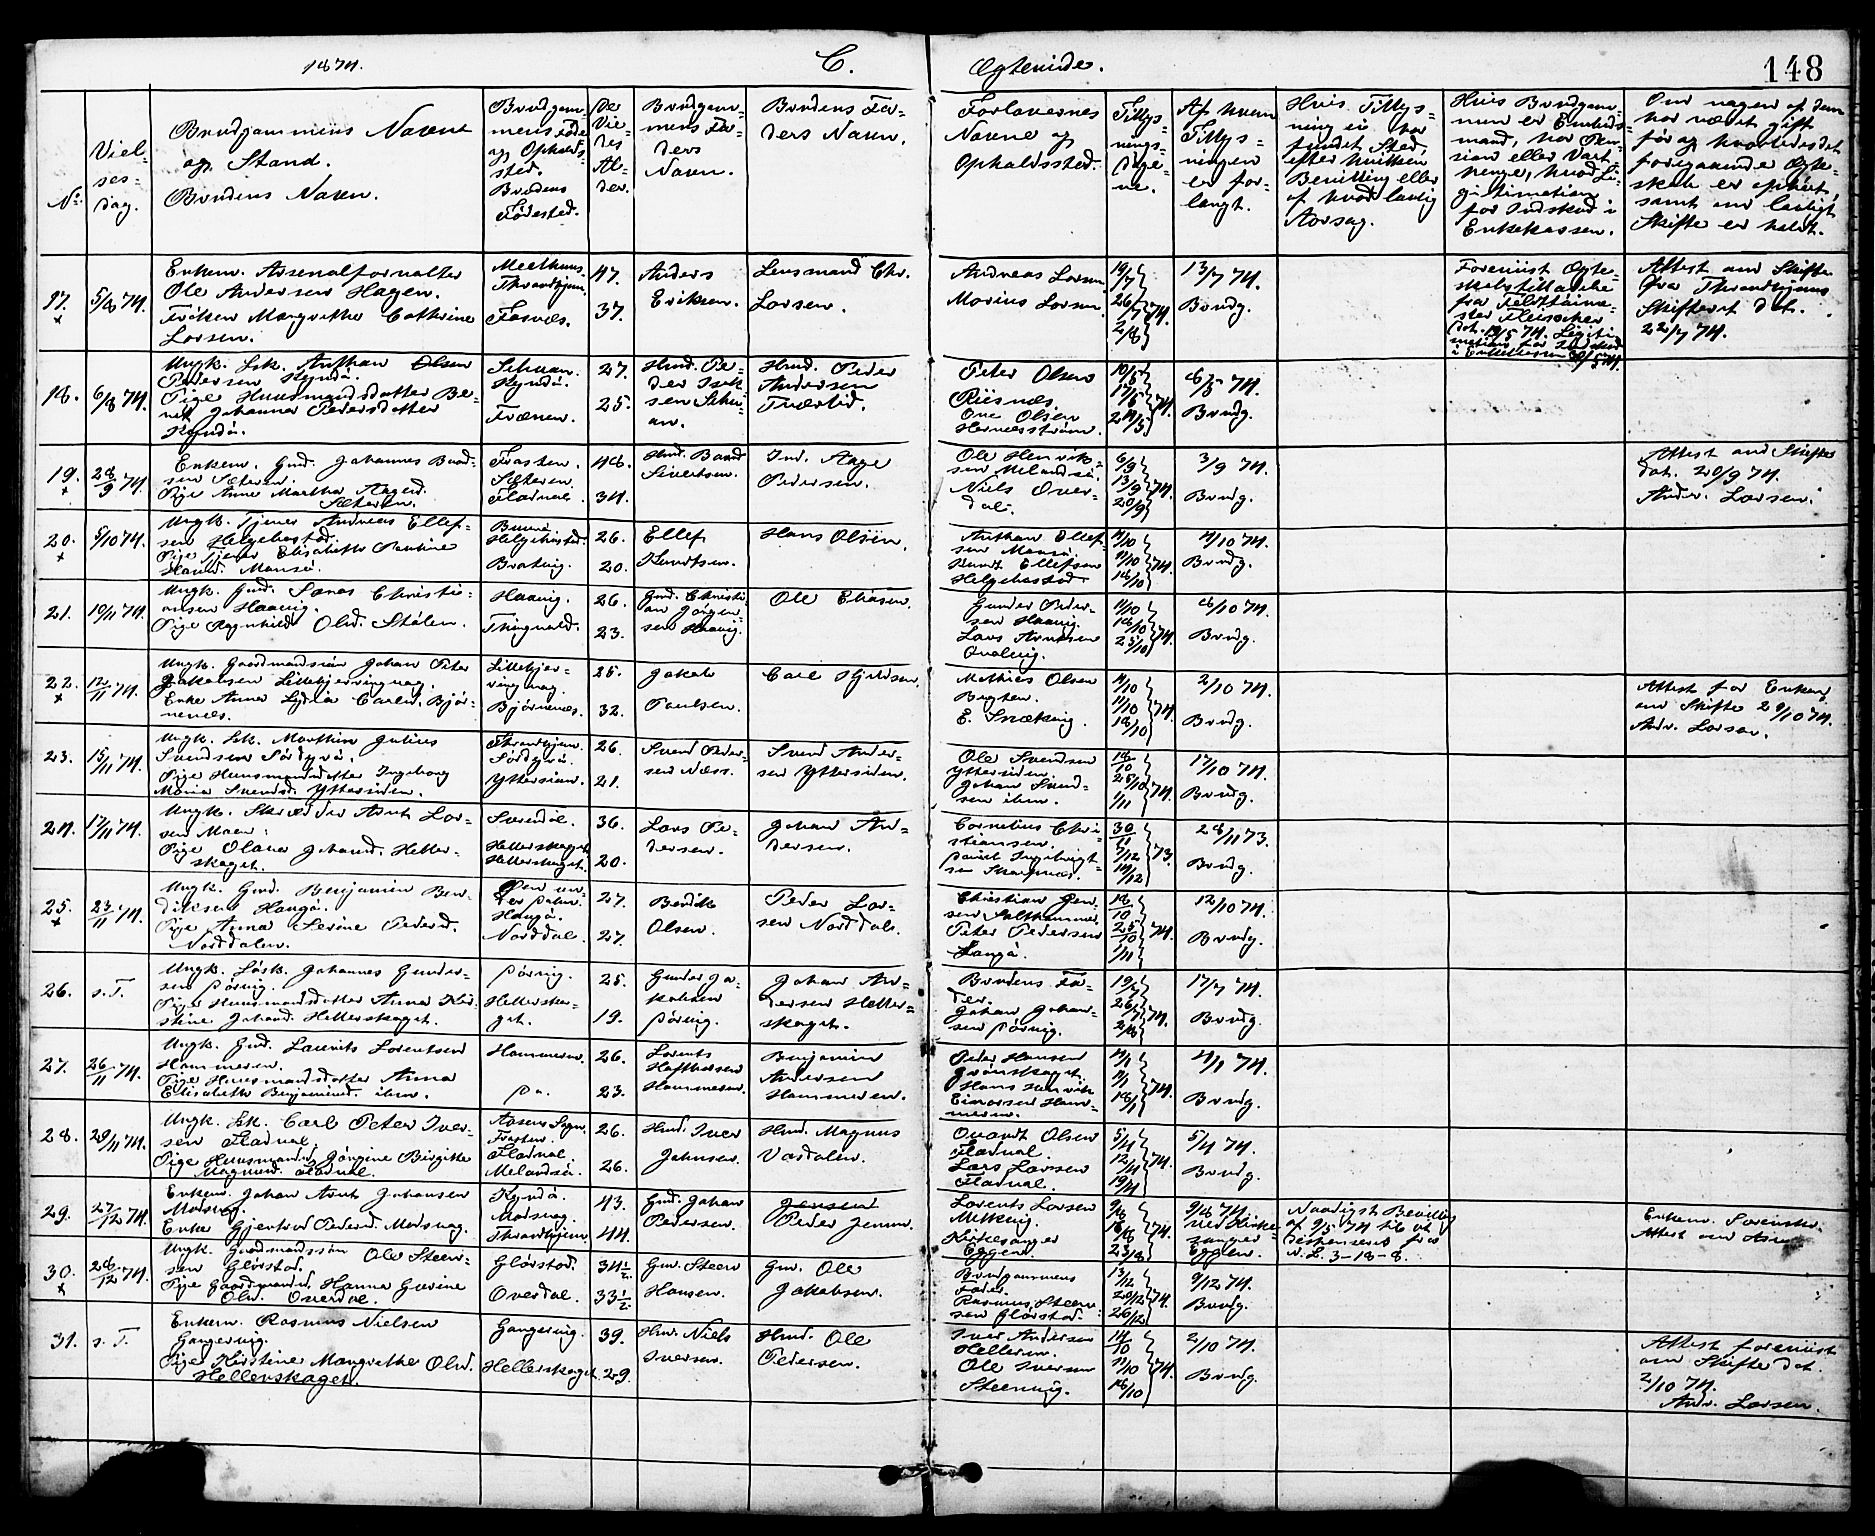 1874.
C.
Ægteviede.
148
No.
Viel-
ses-
dag.
Brudgommens Navne
og Stand.
Brudens Navn.
Brudgom-
mens Føde
og Opholds-
sted.
Brudens
Fødested.
De
Vie-
des
Al-
der.
Brudgom-
mens Fa-
ders
Navn.
Brudens Fa-
ders Navn.
Forlovernes
Navne og
Opholdssted.
Tillys-
nings-
Dage-
ne.
Af hvem
Tillys-
ningen
er for-
langt.
Hvis Tillys-
ning ei har
fundet Sted,
efter hvilken
Bevilling eller
af hvad lovlig
Aarsag.
Hvis Brudgom-
men er Embeds-
mand, har Pen-
sion eller Vart-
penge, hvad Le-
gitimation
for Indskud i
Enkekassen.
Om nogen af dem
har været gift
før og hvorledes det
foregaaende Ægte-
skab er ophørt,
samt om lovligt
Skifte er holdt.
17. 5/8 74.
Enkem. Arsenalforvalter
Ole Andersen Hagen.
Frøken Margrethe Cathrine
Lorsen.
Throndhjem.
Fosnæs.
47.
37.
Anders
Eriksen.
Lensmand Chr.
Lorsen.
Andreas Lorsen
Marius Lorsen
19/7
26/7 74.
2/8
13/7 74.
Brudg.
Foreviist Ægte-
skabstilladelse
fra Felttøime-
ster Fleischer
Attest om Skifte
fra Throndhjems
Skifteret dat.
22/7 74.
18. 6/8 74.
Ungk. Isk. Anthon Olsen
Pedersen Kyndø.
Pige Huusmandsdotter Be-
Johanna Pedersdotter
Kyndø.
Kyndø.
27.
25.
Husd. Pe-
der Isak-
sen
Husd. Peder
Andersen
Peter Olsen
Riisnæs
Ole Olsen
10/5
17/5 74.
24/5
6/5 74.
Brudg.
19. 28/9 74.
Enkem. Gmd. Johannes Baad-
sen Sæteren.
Pige Anne Martha Aagesd.
Sæteren.
Frosten.
Sæteren.
Fladval.
48.
34.
Husd. Baad
Sivertsen.
Ind. Aage
Pedersen.
Ole Henrik-
sen Melandsø.
Niels Over-
dal.
6/9
13/9 74.
20/9
3/9 74.
Brudg.
Attest om Skifte
dat. 20/9 74.
Andr. Lorsen.
20. 5/10 74.
Ungk. Tjener Andreas Ellef-
sen Helgebostad.
Pige Tjener Elisabeth Pauline
Hansd. Mausø.
Helgebostad.
Bratvig.
26.
20.
Ellef
Knudtsen.
Hans Olsen.
Anthon Ellef-
sen Mausø.
Knudt Ellefsen
Helgebostad.
4/10
11/10 74.
18/10
4/10 74.
Brudg.
21. 10/11 74.
Ungk. Gmd. Søren Christi-
ansen Haavig.
Pige Ragnhild Olsd. Stølen.
Haavig.
Thingvold.
26.
23.
Gmd. Christi-
an Jørgen-
sen Haavig.
Ole Eliasen.
Gunder Peder-
sen Haavig.
Lars Arnesen
Qvalvig.
11/10
18/10 74.
25/10
6/10 74.
Brudg.
22. 12/11 74.
Ungk. Gaardmandssøn Johan Peter
Jakobsen Lillebjørvingvaag.
Enke Anna Lydia Carlsd. Bjør-
nenæs.
Lillebjør-
vingvaag.
Bjørnenæs.
25.
32.
Jakob
Paulsen.
Carl Hjeldsen.
Mathias Olsen
E. Snekvig.
4/10
11/10 74.
18/10
2/10 74.
Brudg.
Attest for Enken
om Skifte 29/10 74.
Andr. Lorsen.
23. 15/11 74.
Ungk. Isk. Marthin Julius
Svendsen Sørdyrø.
Pige Huusmandsdotter Ingeborg
Maria Svendsd. Yttersiden.
Throndhjem.
Sørdyrø.
Yttersian.
26.
21.
Svend Peder-
sen Næss.
Svend Ander-
sen Yttersiden.
Ole Svendsen
Yttersiden.
Johan Svend-
sen ibm.
18/10
25/10 74.
1/11
17/10 74.
Brudg.
24. 17/11 74.
Ungk. Skrædder Arnt Lor-
sen Moen.
Pige Olava Johansd. Heller-
skaget.
Surendal.
Hellerskaget
Hellerskaget.
36.
20.
Lars Pe-
dersen.
Johan An-
dersen.
Cornelius Chri-
stiansen.
30/11
7/12 73.
14/12
28/11 73.
Brudg.
25. 23/11 74.
Ungk. Gmd. Benjamin Ben-
diksen Hangø.
Pige Anna Serine Pedersd.
Norddalen.
Hangø.
Norddal.
27.
27.
Bendik
Olsen.
Peder Lor-
sen Norddal.
Christian Jen-
sen Salthammer.
Peter Pedersen
Langø.
18/10
25/10 74.
1/11
12/10 74.
Brudg.
26. s. T.
Ungk. Isk. Johannes Gunder-
sen Pørvig.
Pige Huusmandsdotter Anna Kir-
stine Johansd. Hellerskaget.
Pørvig.
Hellerska-
get.
25.
19.
Gunder Ja-
kobsen
Pørvig.
Johan An-
dersen Heller-
skaget.
Brudens Fa-
der.
Johan Johan-
sen Pørvig.
19/7
26/7 74.
2/8
17/7 74.
Brudg.
27. 26/11 74.
Ungk. Gmd. Laurits Lorentsen
Hammeren.
Pige Huusmandsdotter Anna
Elisabeth Benjaminsd. ibm.
Hammeren.
26.
23.
Lorents
Hammeren.
Benjamin
Andersen
Hammeren.
Peder Hansen
Grønskaget.
Hans Henrik
Einarsen Ham-
meren.
4/1
11/1 74.
18/1
4/1 74.
Brudg.
28. 29/11 74.
Ungk. Isk. Carl Peter Iver-
sen Fladval.
Pige Huusmandsd. Jørgine Birgitte
Magnusd. Fladval.
Aasens Sogn.
Frosten.
Fladval.
Melandsø.
26.
26.
Husd. Iver
Johnsen.
Husd. Magnus
Vasdalen.
Qvandt Olsen
Fladval.
Lars Larsen
Fladval.
5/4
12/4 74.
19/4
5/4 74.
Brudg.
29. 27/12 74.
Enkem. Johan Arnt Johansen
Modsvag.
Enke Gjertrud Pedersd. Modsvag.
Kyndø.
Modsvag.
Throndhjem.
43.
44.
Gmd. Johan
Pedersen.
Jensen
Peder Jensen.
Lorents Lorsen
Melkvig.
Kirkesanger
Eggen.
9/8
16/8 74.
23/8
9/8 74.
ved Kirke-
sanger
Eggen.
Naadigst Bevilling
af 9/5 74 til at
dispenseres fra
N. L. 3-18-8.
30. 28/12 74.
Ungk. Gaardmandssøn Ole Steen-
sen Glørstad.
Pige Gaardmandsd. Hanna Gurine
Olsd. Overdal.
Glørstad.
Overdal.
34 1/2.
33 1/2.
Gmd. Steen
Hansen.
Gmd. Ole
Jakobsen.
Brudgommens
Fader.
Rasmus Steen-
sen Glørstad.
13/12
20/12 74.
26/12
9/12 74.
Brudg.
31. s. T.
Enkem. Rasmus Nielsen
Gangervig.
Pige Kirstine Margrethe Olsd.
Hellerskaget.
Gangervig.
Hellerskaget.
39.
29.
Hmd. Niels
Iversen.
Hmd. Ole
Pedersen.
Iver Andersen
Helleren.
Ole Iversen
Steenvig.
4/10
11/10 74.
18/10
2/10 74.
Brudg.
Attest foreviist
om Skifte dat.
2/10 74.
Andr. Lorsen.